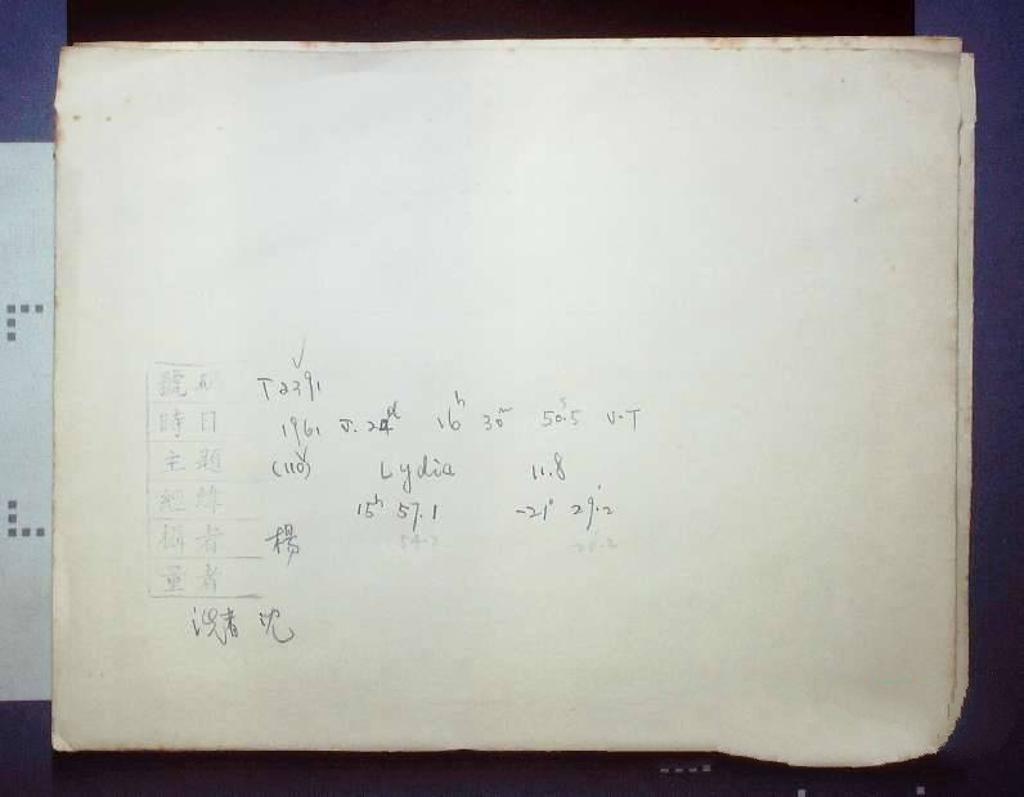 號碼 T2391
時日 1961 V. 24d 16h 30m 50s.5 U.T
主題 (110) Lydia 11.8
經緯 15h 57.1 -21° 29.2
攝者 楊
量者
洗者 沈